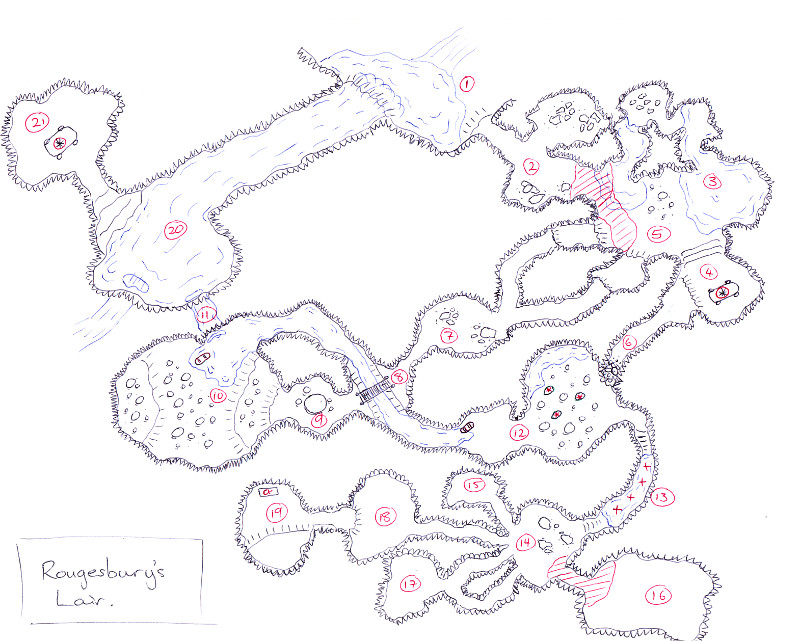 1
21
2
3
20
5
4
11
7
6
8
10
9
12
15
13
19
18
14
17
16
Rougesbury's
Lair.